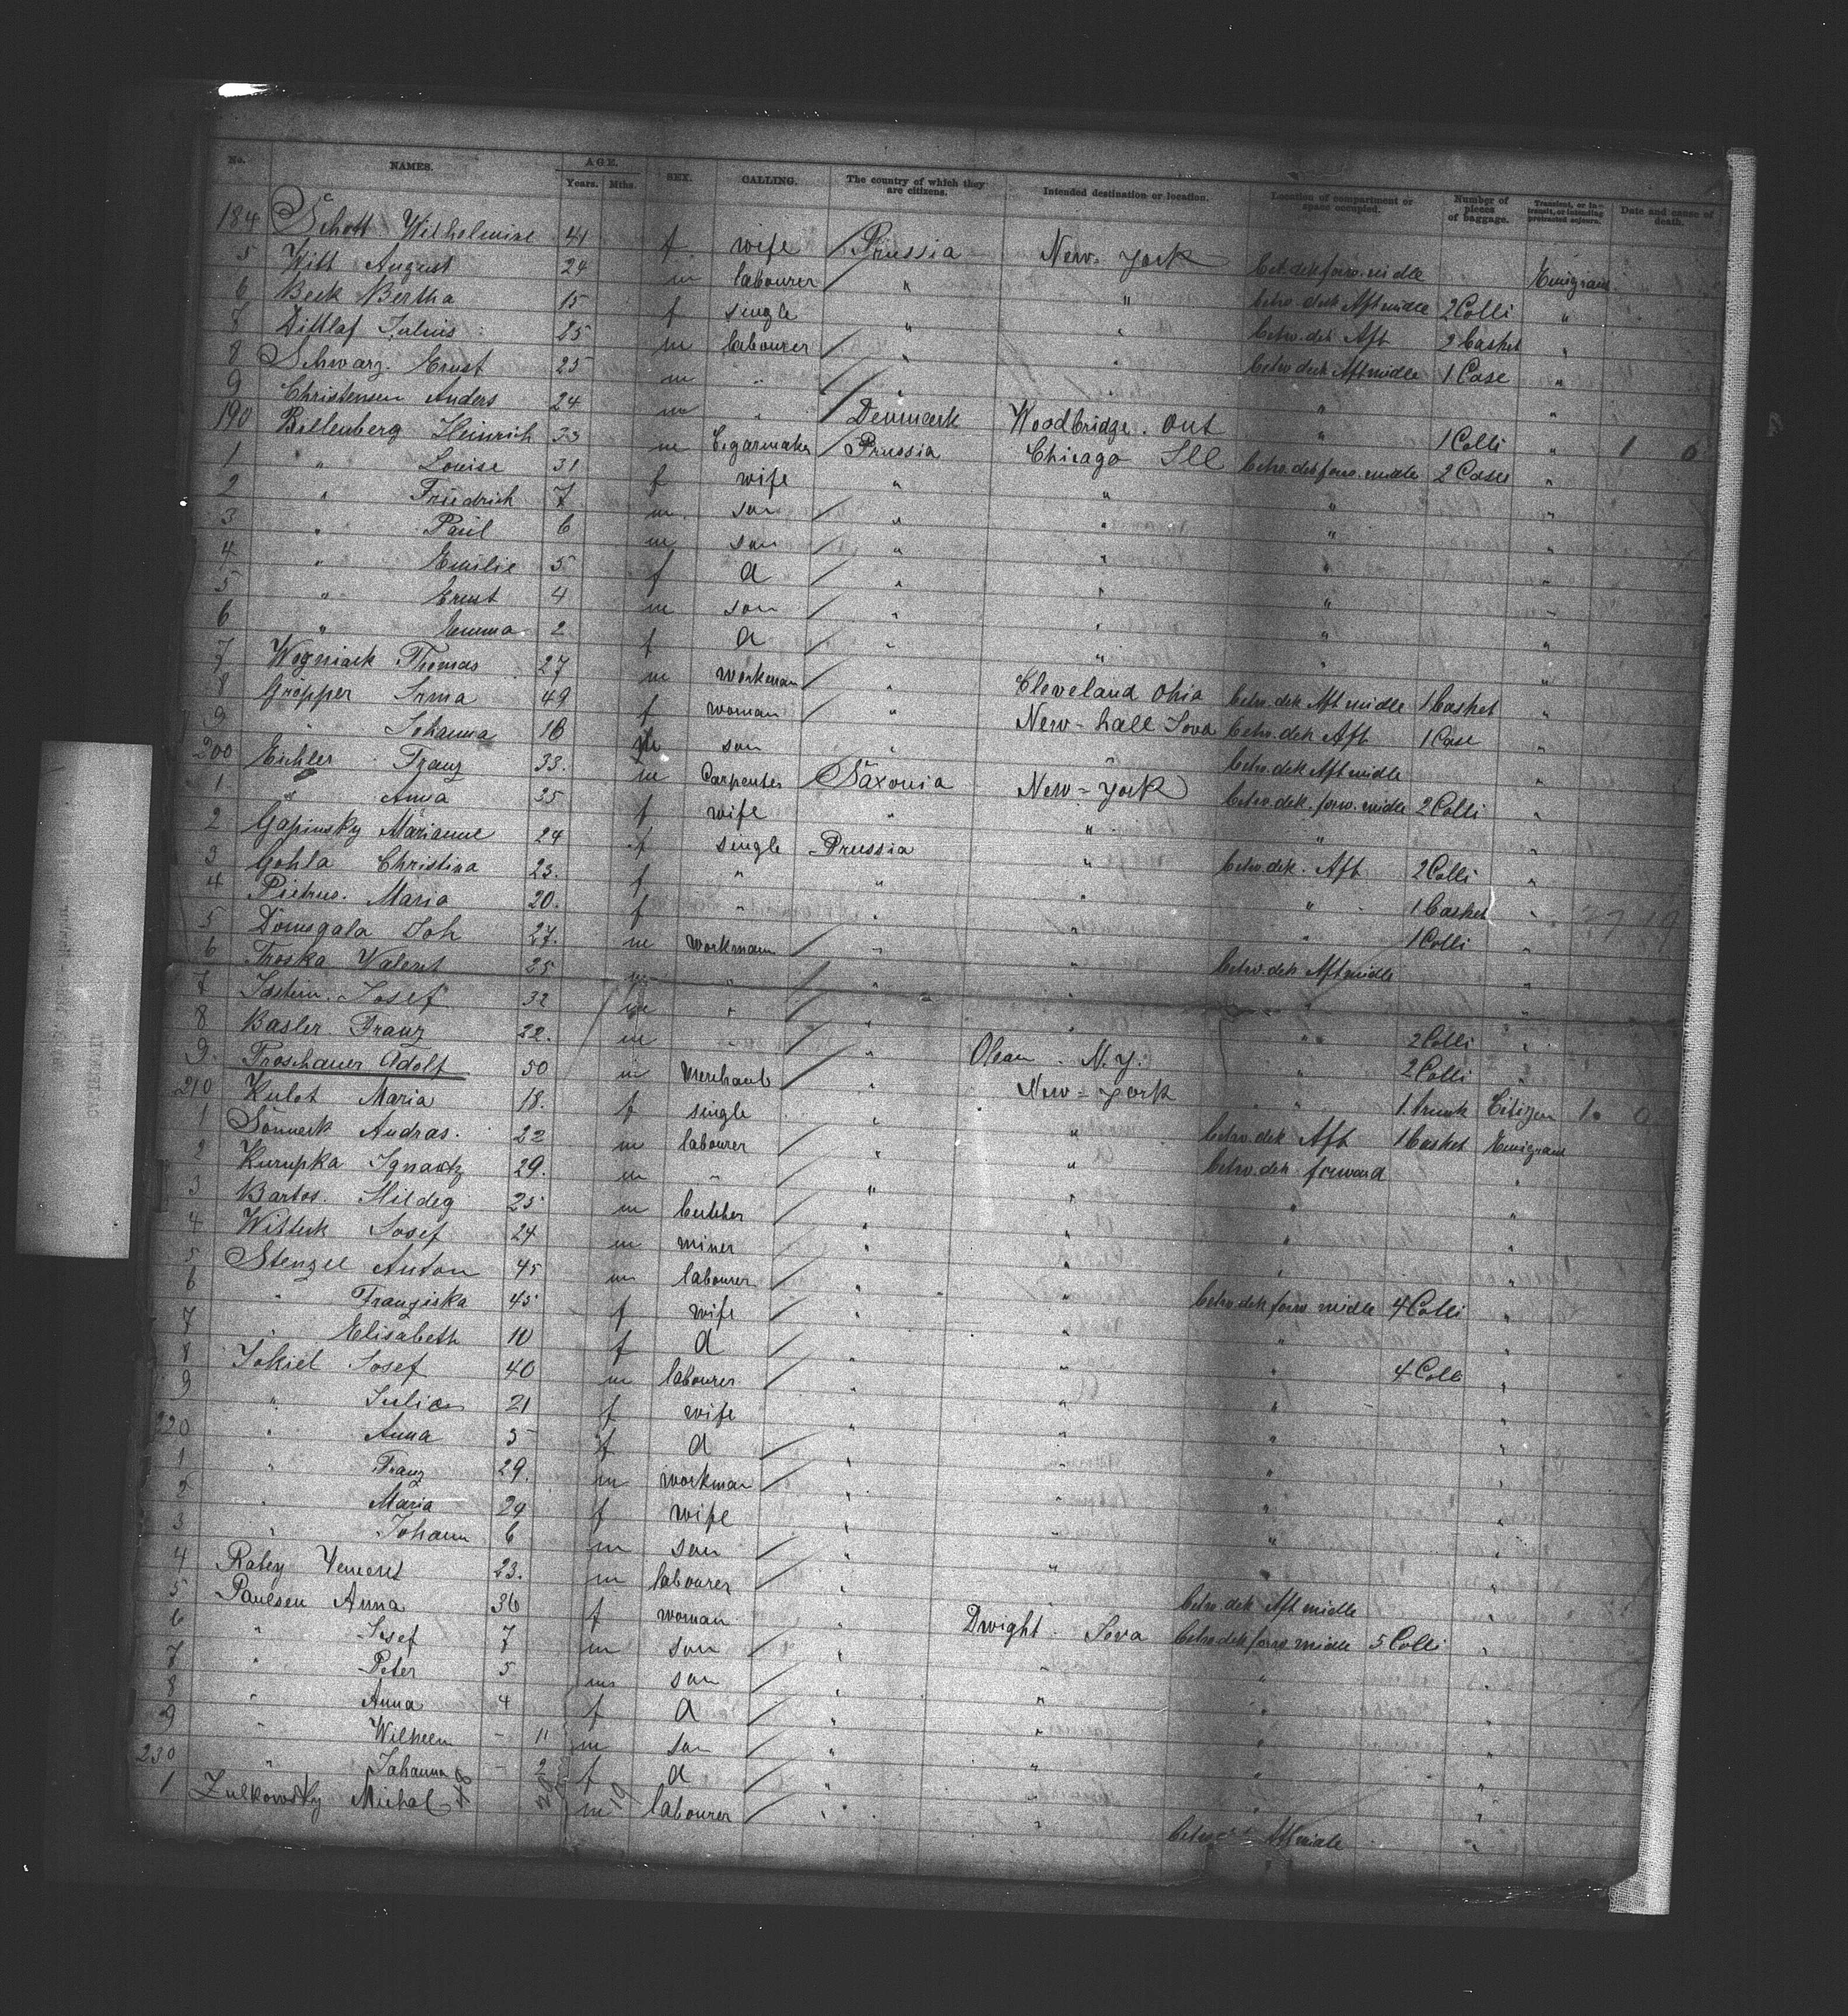 No. NAMES. AGE. Years. Mths. SEX. CALLING. The country of which they are citizens. Intended destination or location. Location of compartment or space occupied. Number of pieces of baggage. Transient, or in-transit, or intending protracted sojourn. Date and cause of death.
184 Schott Wilhelmine 41 f wife / Prussia New-York betw. dek forw. midle Emigrant
5 Witt August 24 m labourer / " " betw. dek Aft midle 2 Colli "
6 Beck Bertha 15 f single " " betw. dek Aft 2 Casket "
7 Dittlaf Julius 25 m labourer / " " betw. dek Aft midle 1 Case "
8 Schwarz Ernst 25 m " / " " " "
9 Christensen Anders 24 m " / Denmark Woodbridge. Out " 1 Colli " 1 0
190 Billenberg Heinrich 33 m Cigarmaker / Prussia Chicago Ill betw. dek forw. midle 2 Cases "
1 " Louise 31 f wife " " " "
2 " Friedrich 7 m son / " " " "
3 " Paul 6 m son / " " " "
4 " Emilie 5 f d / " " " "
5 " Ernst 4 m son / " " " "
6 " Emma 2 f d / " " " "
7 Wogniack Thomas 27 m workman / " Cleveland Ohio betw. dek Aft midle 1 Casket "
8 Gropper Irma 49 f woman / " New-hall Iova betw. dek Aft 1 Case "
9 " Johanna 16 son " " betw. dek Aft midle "
200 Eichler Franz 33. m Carpenter / Saxonia New-York betw. dek. forw. midle 2 Colli "
1 " Anna 35 f wife " " " "
2 Gapinsky Marianne 24 f single Prussia " betw. dek. Aft 2 Colli "
3 Gohla Christina 23. f " " " " 1 Casket "
4 Pietrus. Maria 20. f " " " " 1 Colli "
5 Domsgala Joh 27. m workmann / " " betw. dek Aft midle "
6 Troska Valent 25 m " / " " " "
7 Josef 32 m " / " " " 2 Colli "
8 Basler Franz 22. m " / " Olean. N.Y. " 2 Colli "
9. Froschauer Adolf 50 m Merchant / " New-York " 1 trunk Citizen 1. 0
210 Kulot Maria 18. f single " " betw. dek Aft 1 Casket Emigrant
1 Sonneck Andras. 22 m labourer / " " betw. dek forward "
2 Kurupka Ignatz 29. m " / " " " "
3 Bartos. Hildeg 25 m butcher / " " " "
4 Witteck Josef 24 m miner / " " " "
5 Stenzel Anton 45 m labourer / " " betw. dek forw midle 4 Colli "
6 " Franziska 45 f wife / " " " "
7 " Elisabeth 10 f d " " " 4 Colli "
8 Jokiel Josef 40 m labourer / " " " "
9 " Julia 21 f wife " " " "
220 " Anna 3 f d / " " " "
1 " Franz 29. m workman / " " " "
2 " Maria 24 f wife " " " "
3 " Johann 6 m son / " " " "
4 23. m labourer / " " betw. dek Aft midle "
5 Paulsen Anna 36 f woman " Dwight. Iova betw. dek forw midle 5 Colli "
6 " Josef 7 m son / " " " "
7 " Peter 5 m son / " " " "
8 " Anna 4 f d / " " " "
9 " Wilhelm - 11 m son / " " " "
230 " Johanna - 2 f d / " " " "
1 Zulkowsky Michal 48 m 19 labourer / " " betw. Aft midle "